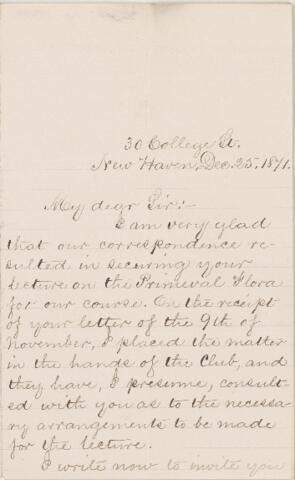 30 College St.
New Haven, Dec. 25, 1871.
My dear Sir:-
I am very glad
that our correspondence re-
sulted in securing your
lecture on the Primeval Flora
for our course. On the receipt
of your letter of the 9th of
November, I placed the matter
in the hands of the Club, and
they have, I presume, consult-
ed with you as to the necessa-
ry arrangements to be made
for the lecture.
I write now to invite you